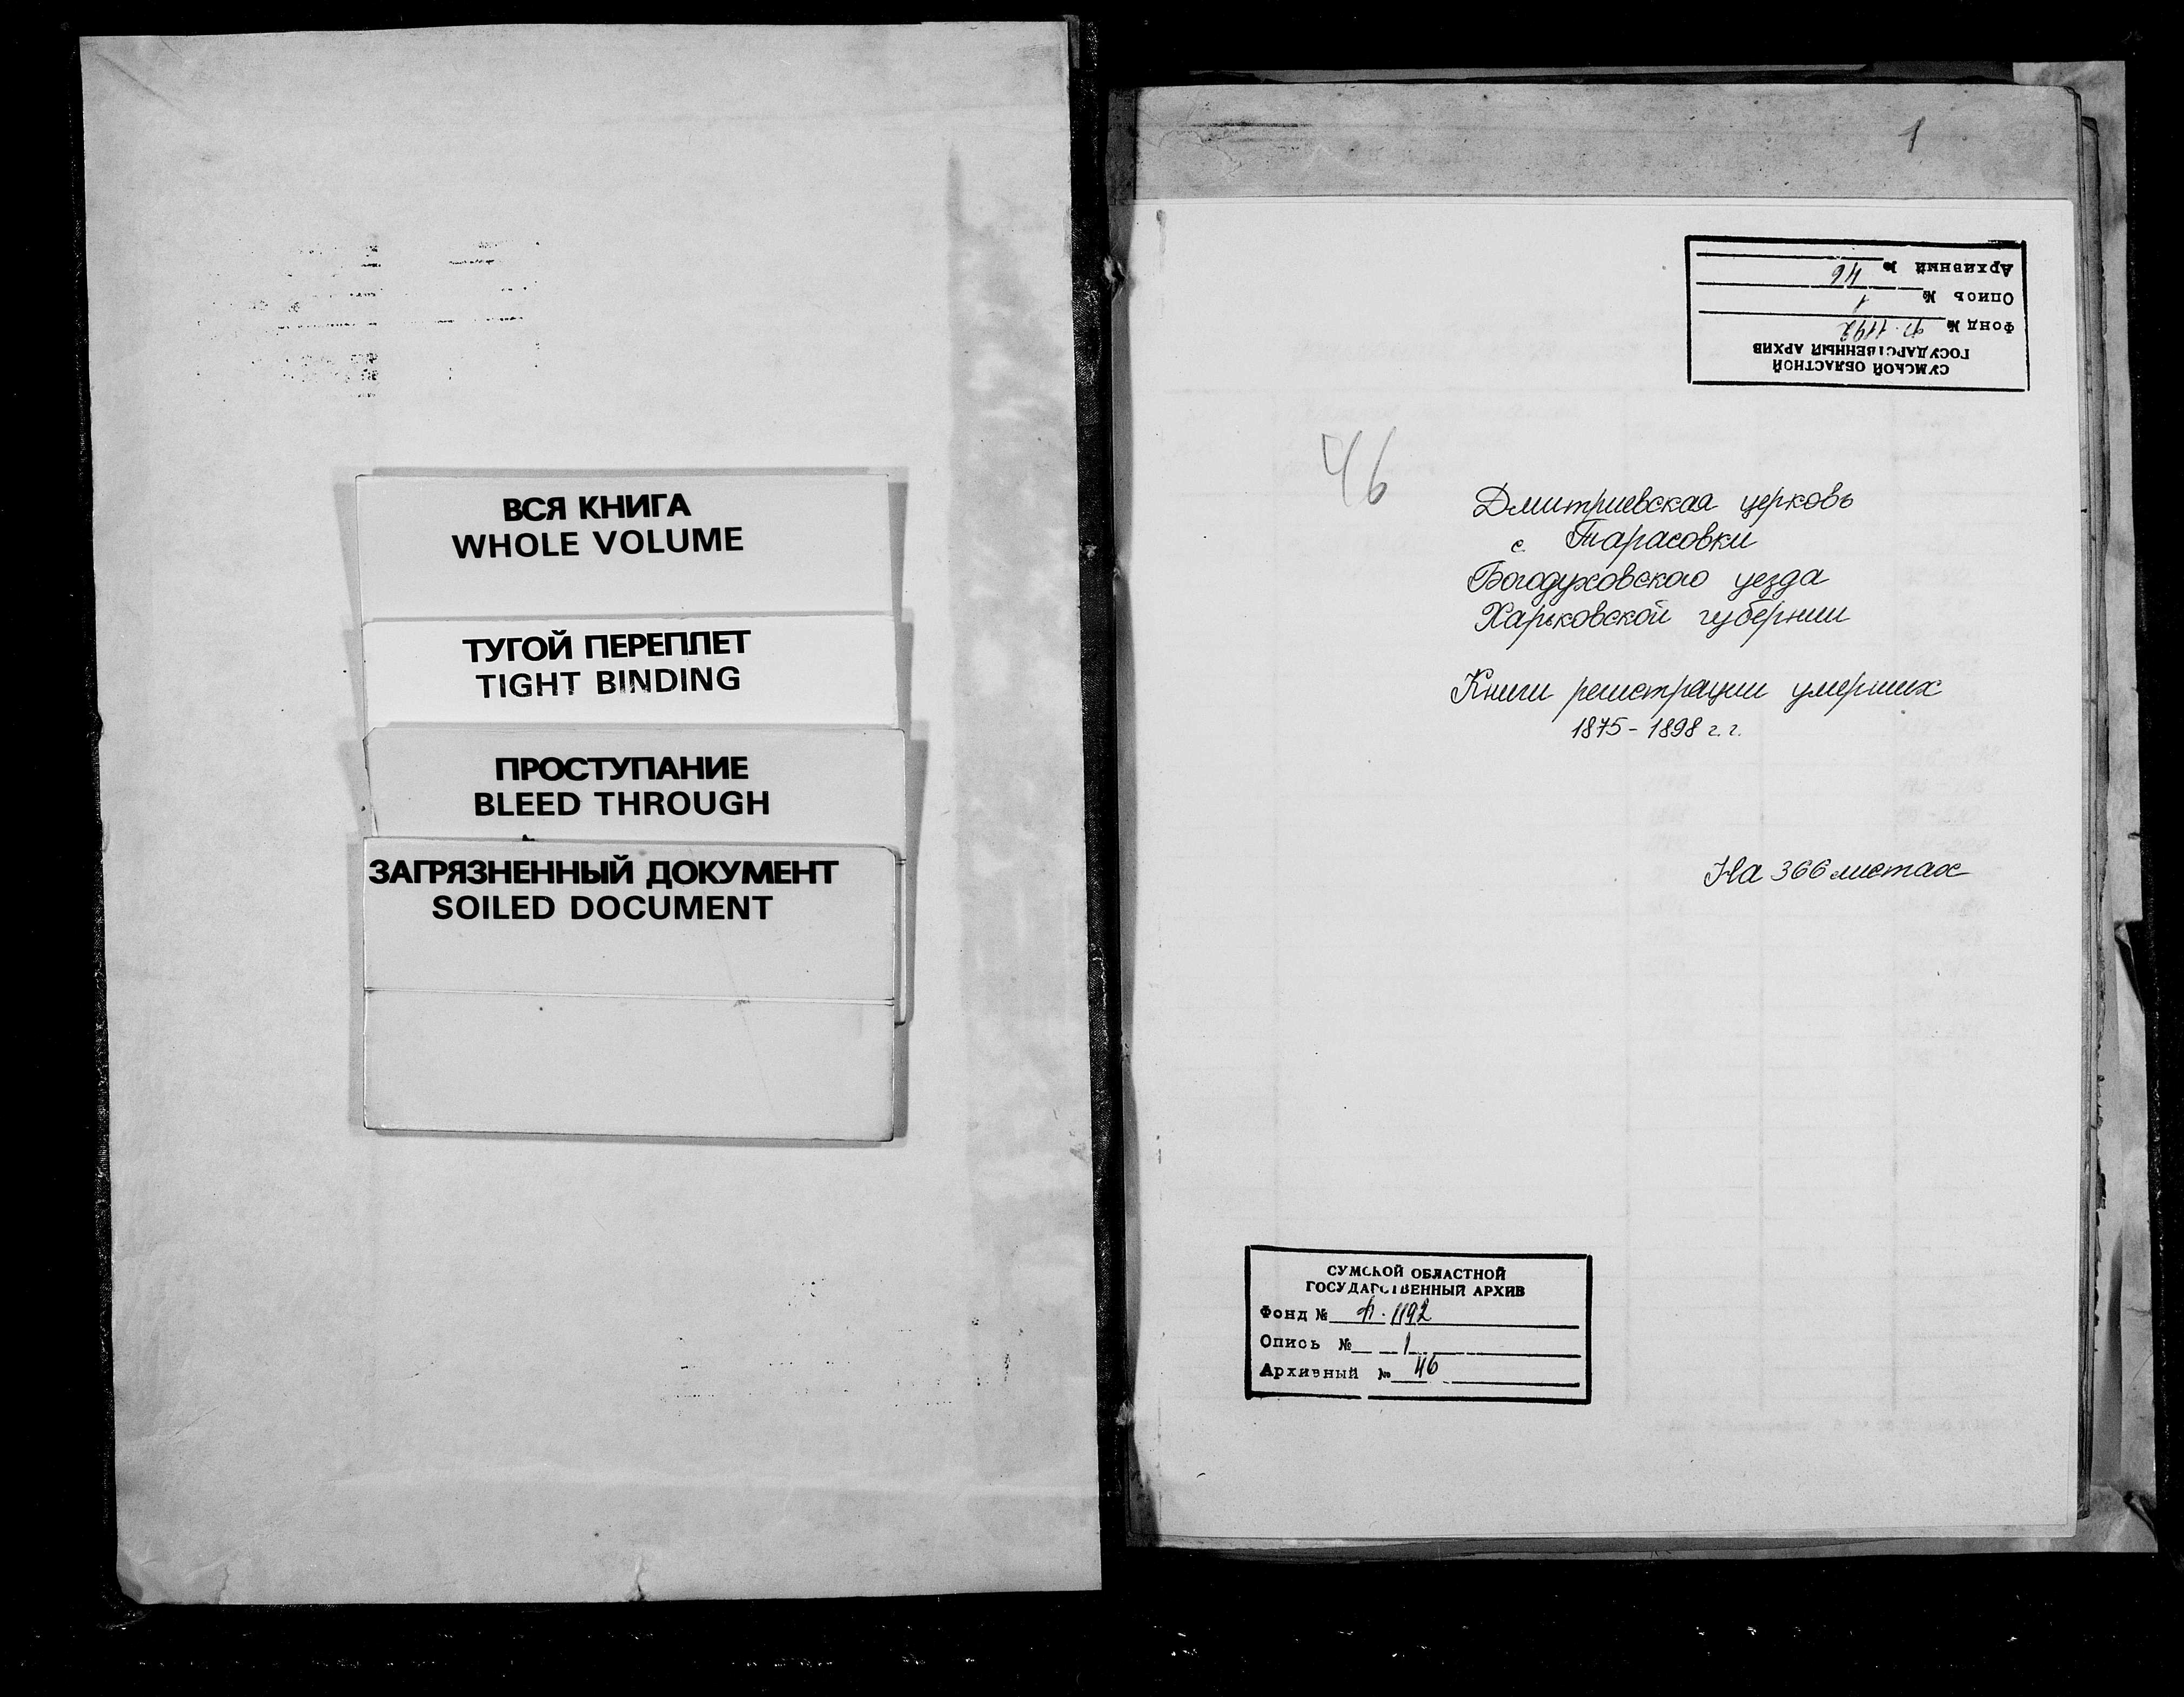 ВСЯ КНИГА
WHOLE VOLUME
ТУГОЙ ПЕРЕПЛЕТ
TIGHT BINDING
ПРОСТУПАНИЕ
BLEED THROUGH
ЗАГРЯЗНЕННЫЙ ДОКУМЕНТ
SOILED DOCUMENT
1
СУМСКОЙ ОБЛАСТНОЙ
ГОСУДАРСТВЕННЫЙ АРХИВ
Фонд № Ф. 1192
Опись № 1
Архивный № 46
46
Дмитриевская церковь
с. Тарасовки
Богодуховского уезда
Харьковской губернии
Книги регистрации умерших
1875 - 1898 г.г.
На 366 листах
СУМСКОЙ ОБЛАСТНОЙ
ГОСУДАРСТВЕННЫЙ АРХИВ
Фонд № Ф. 1192
Опись № 1
Архивный № 46